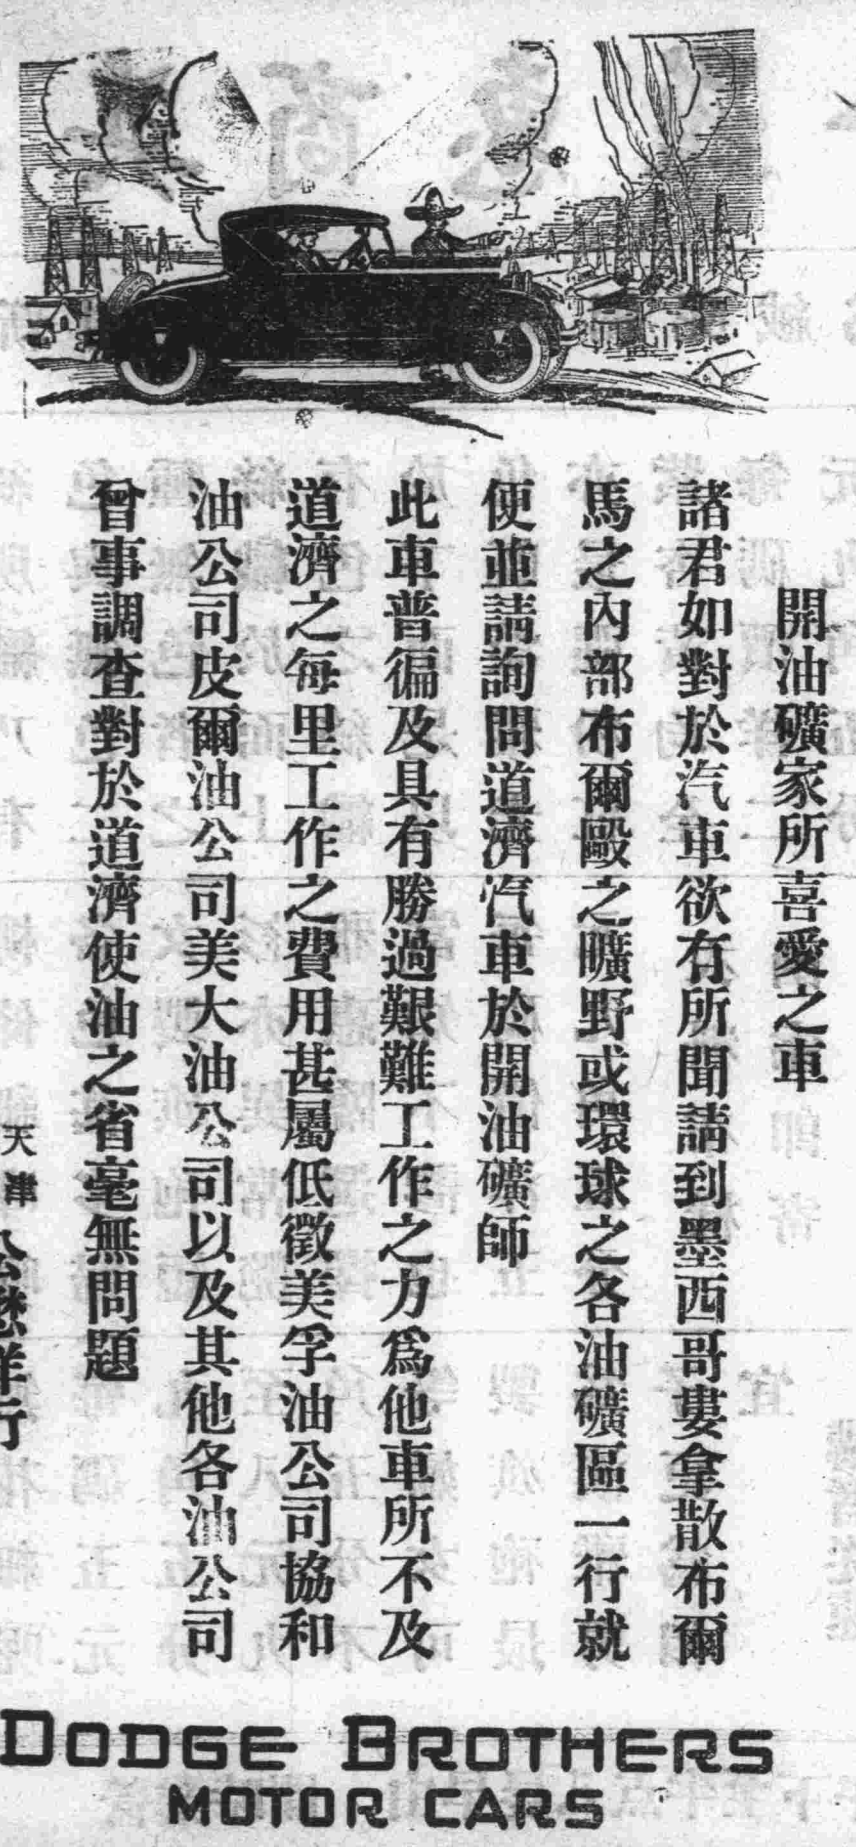 開油礦家所喜愛之車
諸君如對於汽車欲有所聞請到墨西哥婁拿散布爾
馬之內部布爾毆之曠野或環球之各油礦區一行就
便並請詢問道濟汽車於開油礦師
此車普徧及具有勝過艱難工作之力爲他車所不及
道濟之每里工作之費用甚屬低徵美孚油公司協和
油公司皮爾油公司美大油公司以及其他各油公司
曾事調查對於道濟使油之省毫無問題
天津 公懋洋行
DODGE BROTHERS
MOTOR CARS